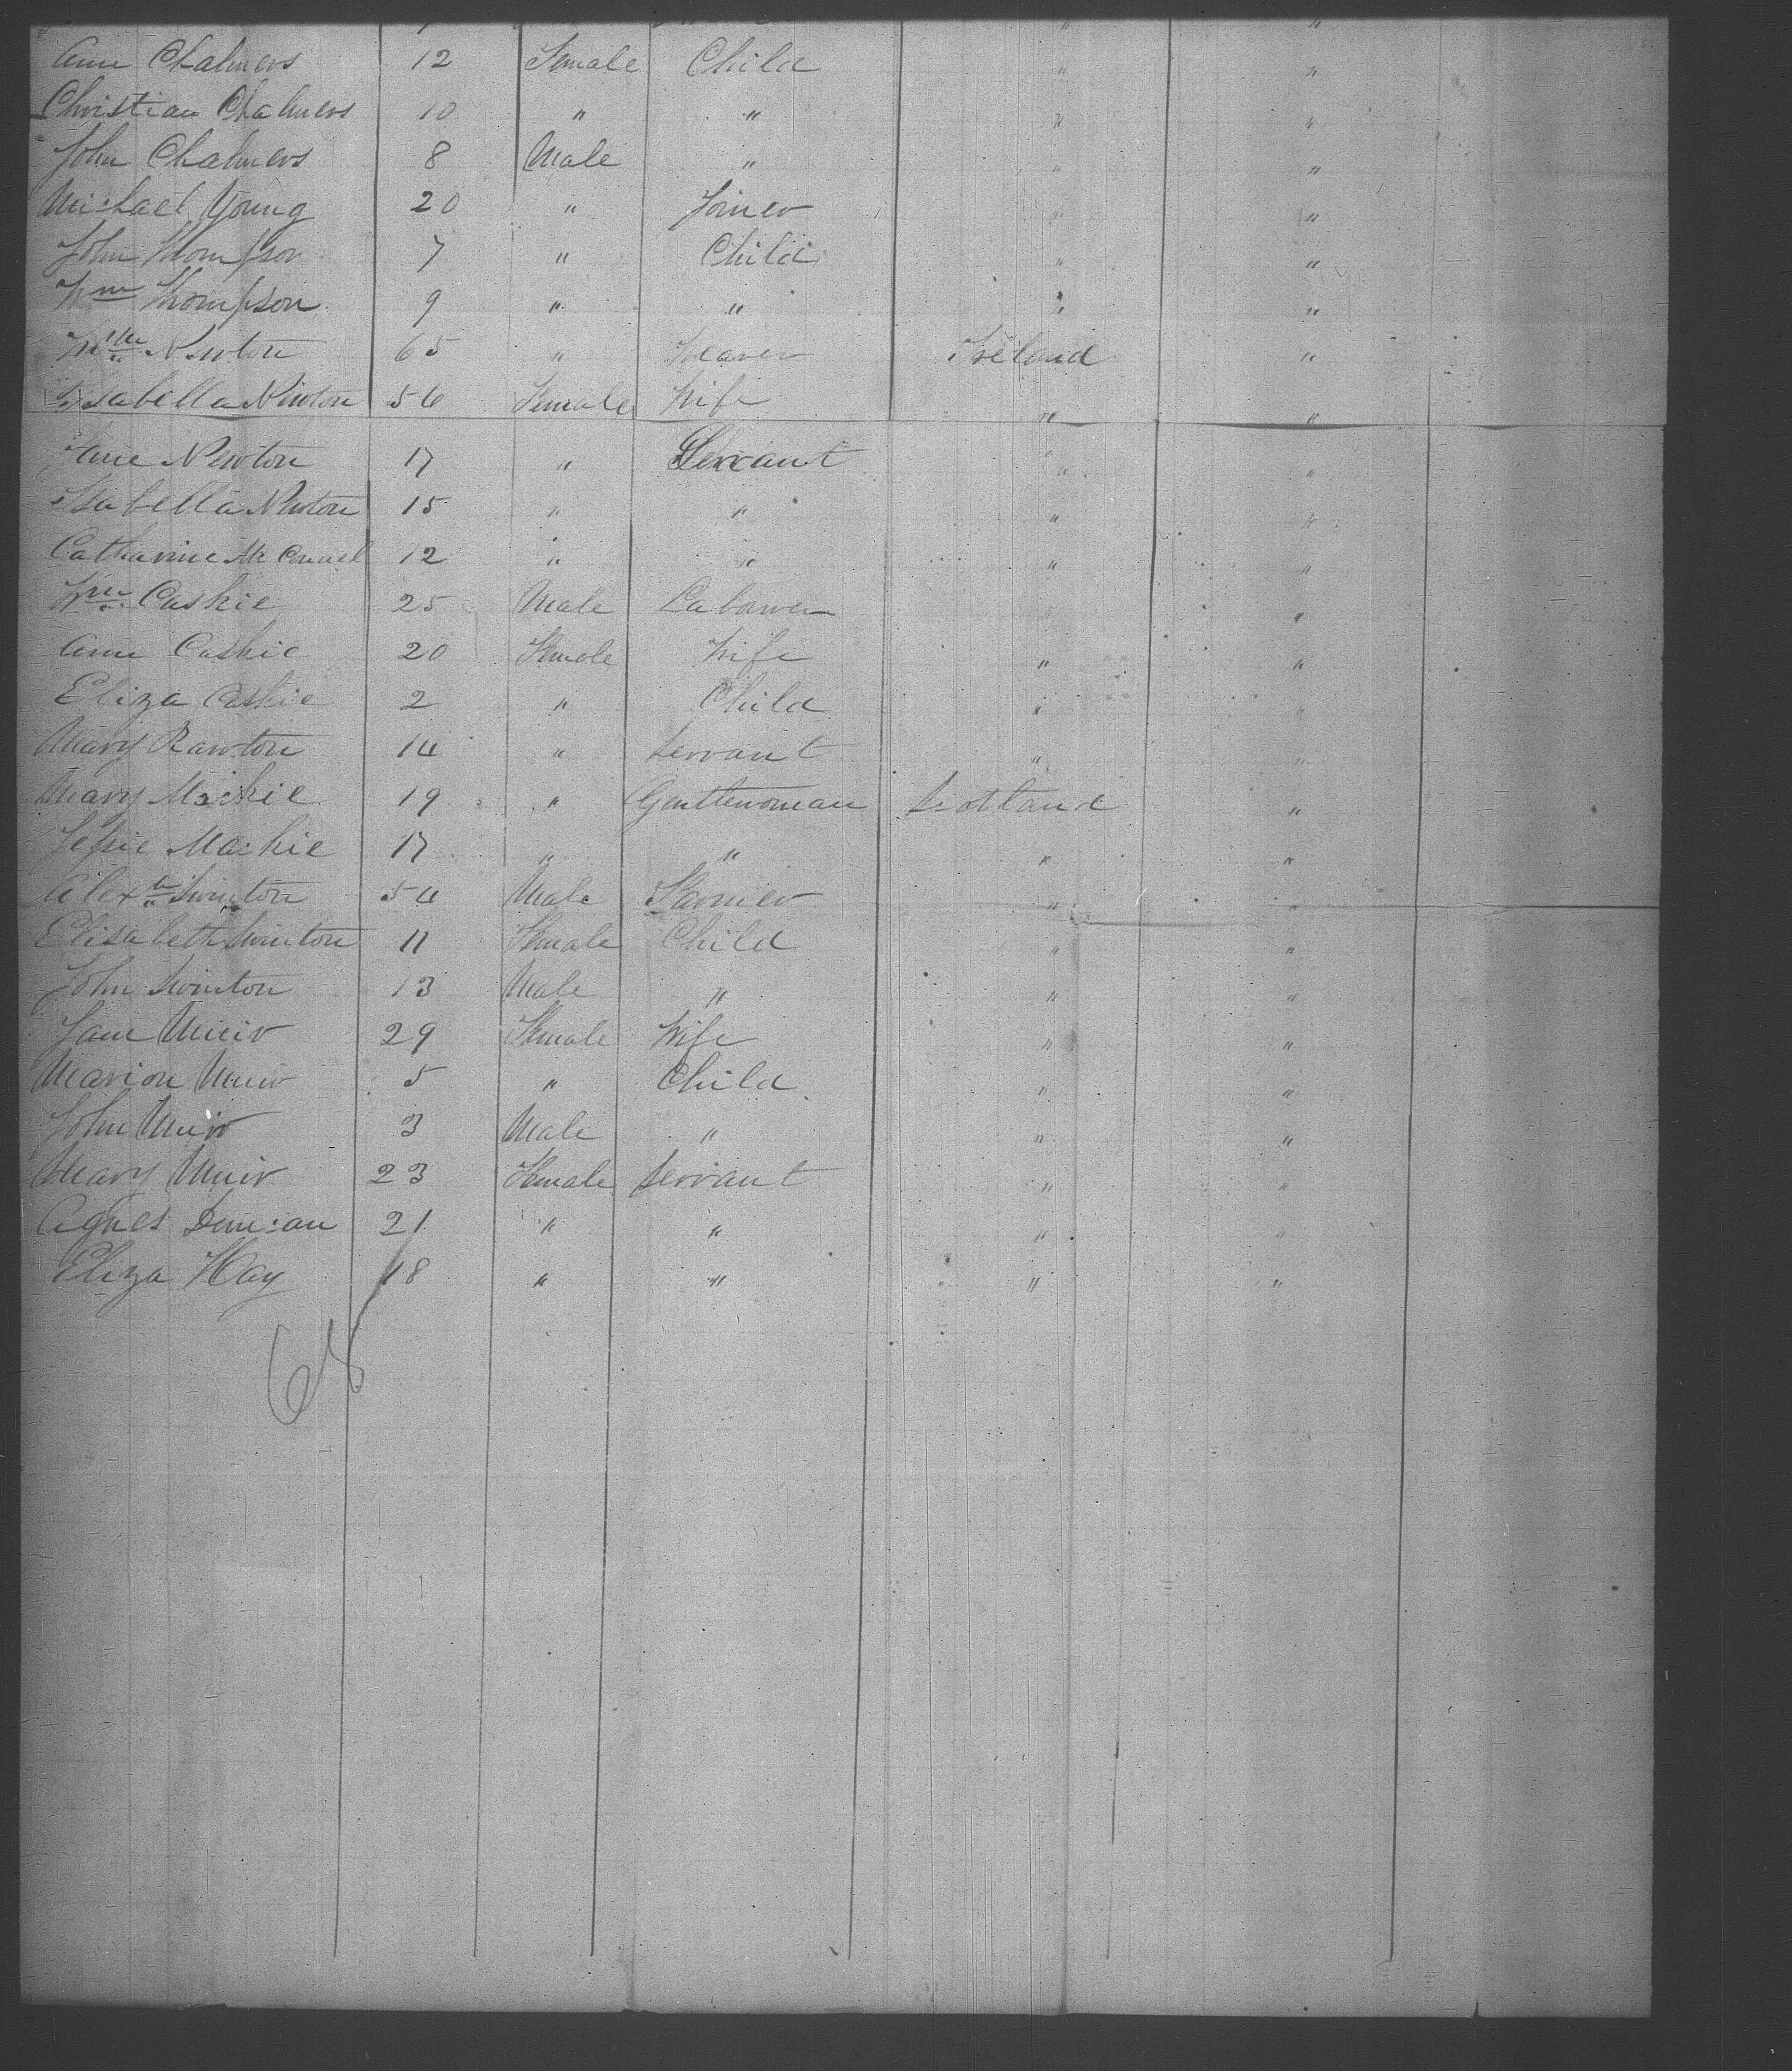 Ann Chalmers 12 Female Child " "
Christian Chalmers 10 " " " "
John Chalmers 8 Male " " "
Michael Young 20 " Joiner " "
John Thompson 7 " Child " "
Wm Thompson 9 " " " "
Wm Newton 65 " Weaver Ireland "
Isabella Newton 54 Female Wife " "
Jane Newton 17 " Servant " "
Isabella Newton 15 " " " "
Catharine McConnel 12 " " " "
Wm Caskie 25 Male Labourer " "
Ann Caskie 20 Female Wife " "
Eliza Caskie 2 " Child " "
Mary Rawton 14 " Servant " "
Mary Mackie 19 " Gentlewoman Scotland "
Jessie Mackie 17 " " " "
Alexr Swinton 54 Male Farmer " "
Elisabeth Swinton 11 Female Child " "
John Swinton 13 Male " " "
Jane Muir 29 Female Wife " "
Marion Muir 5 " Child " "
John Muir 3 Male " " "
Mary Muir 23 Female Servant " "
Agnes Duncan 21 " " " "
Eliza Hay 18 " " " "